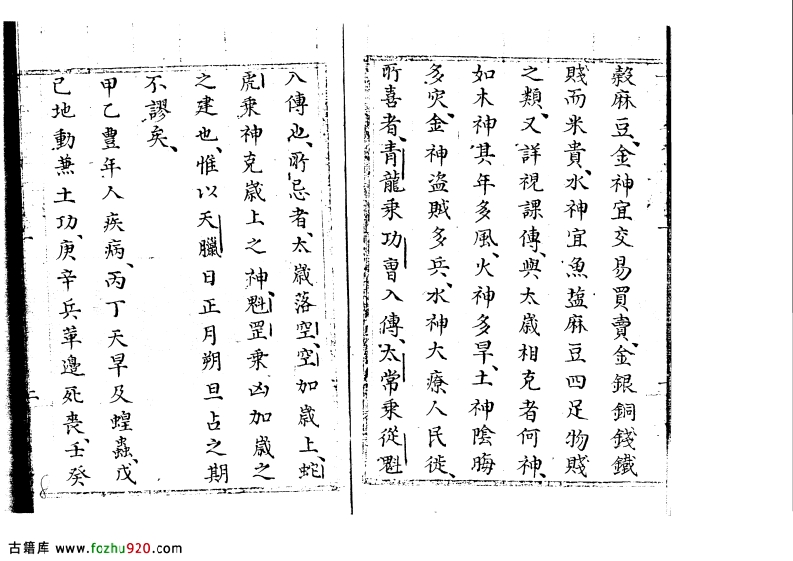 穀麻豆、金神宜交易買賣、金銀銅錢鐵
賤而米貴、水神宜魚塩麻豆四足物賤
之類、又詳視課傳、與太歲相克者何神、
如木神其年多風、火神多旱、土神陰晦
多災、金神盜賊多兵、水神大療人民徙、
所喜者、青龍乘功曹入傳、太常乘從魁
入傳也、所忌者、太歲落空、空加歲上、蛇
虎乘神克歲上之神、魁罡乘凶加歲之
之建也、惟以天臘日正月朔旦占之期
不謬矣、
甲乙豊年人疾病、丙丁天旱及蝗蟲、戊
已地動兼土功、庚辛兵革邊死喪、壬癸
二
8
古籍库 www.fozhu920.com